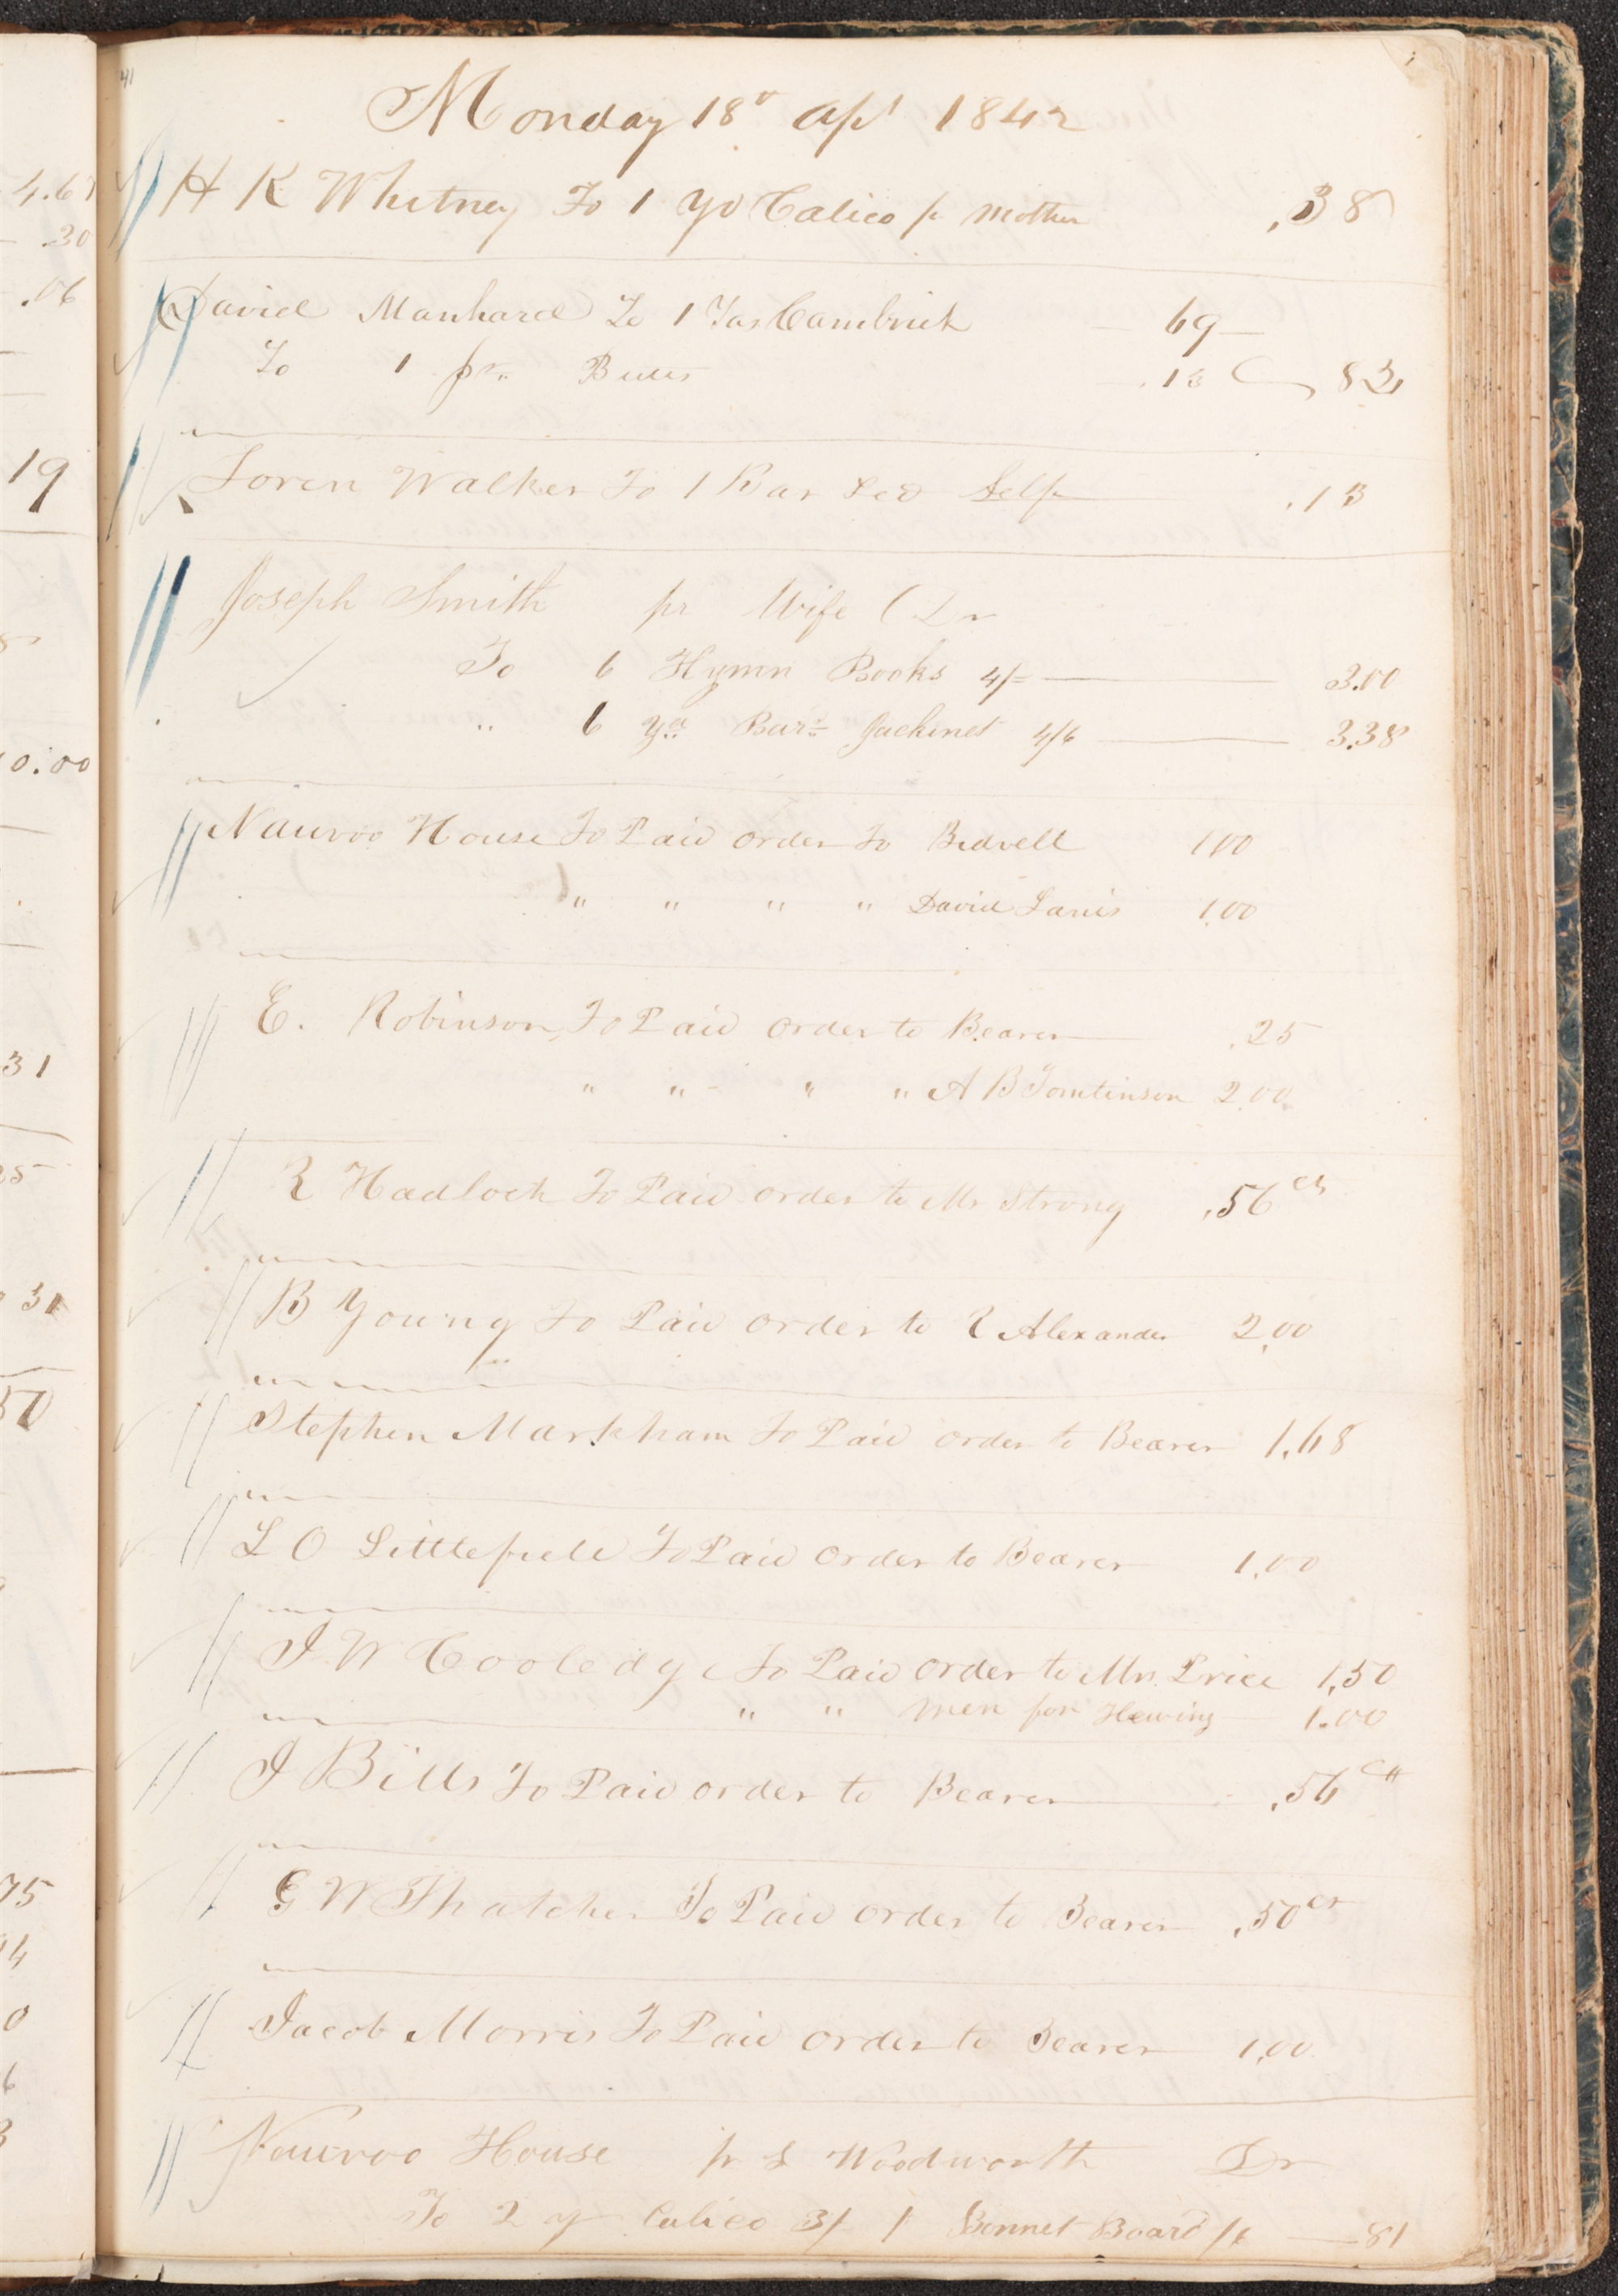 41
Monday 18th Apl 1842
4.67
H K Whitney To 1 yd Calico pr Mother .38
.30
.06
David Manhard To 1 Yar Cambrick 69
To 1 pr 13 82
19
Loren Walker To 1 Bar Led Self .13
Joseph Smith pr Wife Dr
To 6 Hymn Books 4/= 3.00
" 6 yd Bard Jackinet 4/6 3.38
0.00
Nauvoo House To Paid order to Bidwell 1.00
" " " " David Lanis 1.00
E. Robinson, To Paid order to Bearer .25
31
" " " " A B Tomlinson 2.00
25
R Hadlock To Paid order to Mr Strong .56 cts
31
B Young To Paid order to R Alexander 2.00
Stephen Markham To Paid order to Bearer 1.68
L O Littlefield To Paid order to Bearer 1.00
J. W Cooledge To Paid order to Mr. Price 1.50
" " men for Hewing 1.00
J Bills To Paid order to Bearer .56 cts
75
G W Thatcher To Paid order to Bearer .50 cts
Jacob Morris To Paid order to Bearer 1.00
Nauvoo House pr L Woodworth Dr
To 2 y Calico 3/ 1 Bonnet Board /6 81